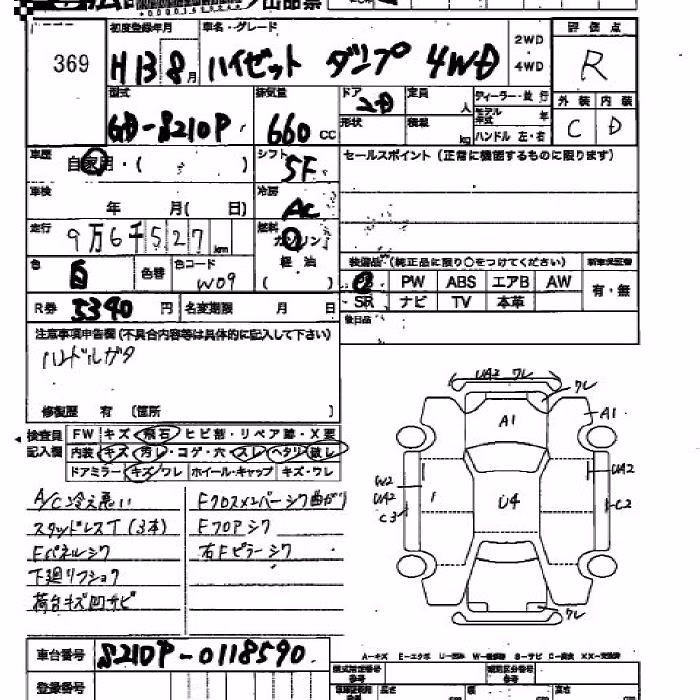 出品票
初度登録年月 車名・グレード 2WD 評価点
369 H13 8月 ハイゼット ダンプ 4WD ・4WD R
型式 排気量 ドア 2D 定員 人 ディーラー・並行 外装 内装
GD-S210P 660cc 形状 積載 kg モデル年式 年 C D
ハンドル 左・右
車歴 自家用・( ) シフト 5F セールスポイント(正常に機能するものに限ります)
車検 年 月( 日) 冷房 AC
走行 9万6千527km 燃料 ガソリン 軽油 ( )
色 白 色替 色コード W09 装備品(純正品に限り○をつけてください) 新車保証書
PS PW ABS エアB AW 有・無
R券 5340円 名変期限 月 日 SR ナビ TV 本革
注意事項申告欄(不具合内容等は具体的に記入して下さい) 後日品
ハンドルガタ
修復歴 有 (箇所
検査員記入欄 FW キズ・飛石・ヒビ割・リペア跡・X要
内装・キズ・汚レ・コゲ・穴・スレ・ヘタリ・破レ
ドアミラー キズ・ワレ ホイール・キャップ キズ・ワレ
A/C冷え悪い Fクロスメンバーシワ曲がり
スタッドレスT(3本) Fフロアシワ
Fパネルシワ 右Fピラーシワ
下廻リフショク
荷台キズ凹サビ
UA2 ワレ
ワレ
A1
A1
W2
UA2
UA2
C3
U4
C2
ワレ
車台番号 S210P-0118590
登録番号